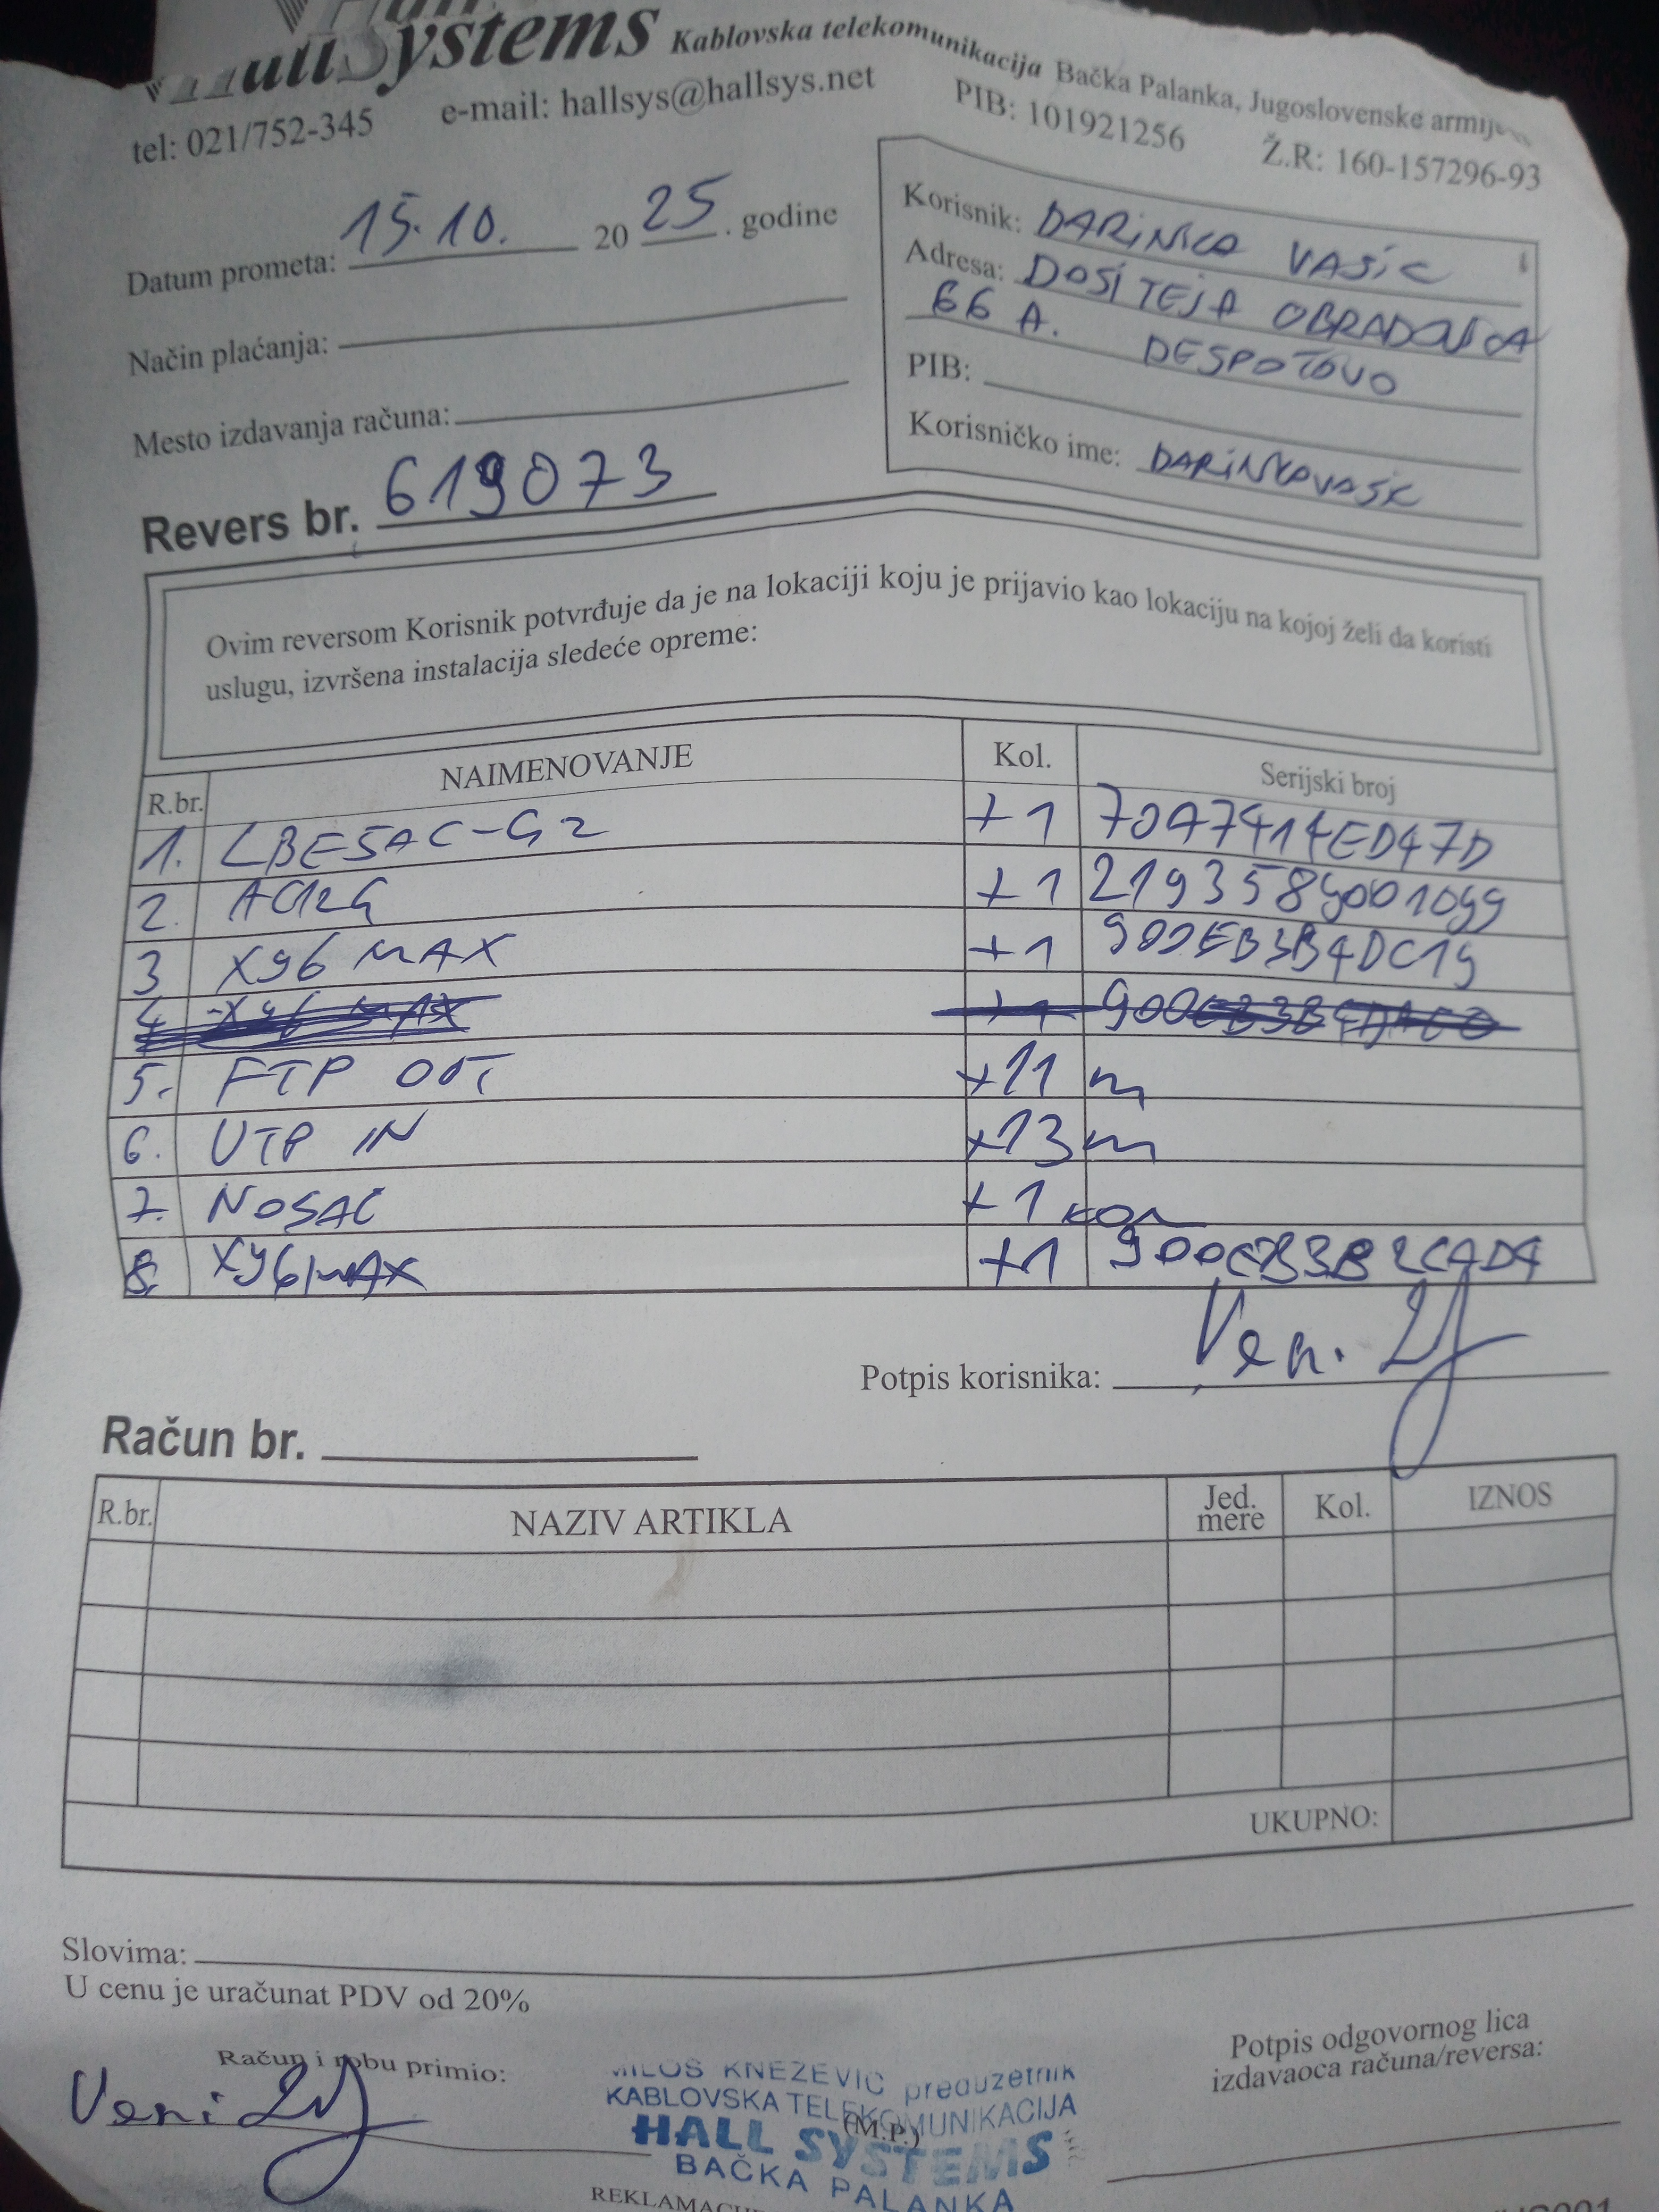 HallSystems Kablovska telekomunikacija Bačka Palanka, Jugoslovenske armije
tel: 021/752-345 e-mail: hallsys@hallsys.net PIB: 101921256 Ž.R: 160-157296-93
Datum prometa: 15.10. 2025. godine
Način plaćanja:
Mesto izdavanja računa:
Revers br. 619073
Korisnik: DARiNKA VASiC
Adresa: DOSiTEJA OBRADOVICA
66 A. DESPOTOVO
PIB:
Korisničko ime: DARiNKAVASIC
Ovim reversom Korisnik potvrđuje da je na lokaciji koju je prijavio kao lokaciju na kojoj želi da koristi
uslugu, izvršena instalacija sledeće opreme:
R.br. NAIMENOVANJE Kol. Serijski broj
1. LBE5AC-G2 +1 70A7414ED47D
2. AC12G +1 2193589001099
3 X96 MAX +1 900EB3B4DC19
4. X96 MAX +1
5. FTP OUT +11 m
6. UTP IN +13 m
7. NOSAC +1 kom
8. X96 MAX +1 900EB3B2CAD4
Potpis korisnika:
Račun br.
R.br. NAZIV ARTIKLA Jed. mere Kol. IZNOS
UKUPNO:
Slovima:
U cenu je uračunat PDV od 20%
Račun i robu primio:
Potpis odgovornog lica
izdavaoca računa/reversa:
MILOŠ KNEŽEVIĆ preduzetnik
KABLOVSKA TELEKOMUNIKACIJA
(M.P.)
HALL SYSTEMS
BAČKA PALANKA